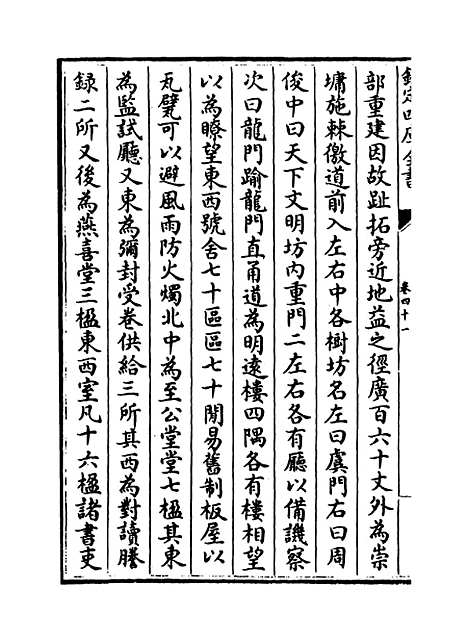 欽定四庫全書
卷四十一
部重建因故趾拓旁近地益之徑廣百六十丈外為崇
墉施棘徼道前入左右中各樹坊名左曰虞門右曰周
俊中曰天下文明坊內重門二左右各有廳以備譏察
次曰龍門踰龍門直甬道為明遠樓四隅各有樓相望
以為瞭望東西號舍七十區區七十間易舊制板屋以
瓦甓可以避風雨防火燭北中為至公堂堂七楹其東
為監試廳又東為彌封受卷供給三所其西為對讀謄
録二所又後為燕喜堂三楹東西室凡十六楹諸書吏